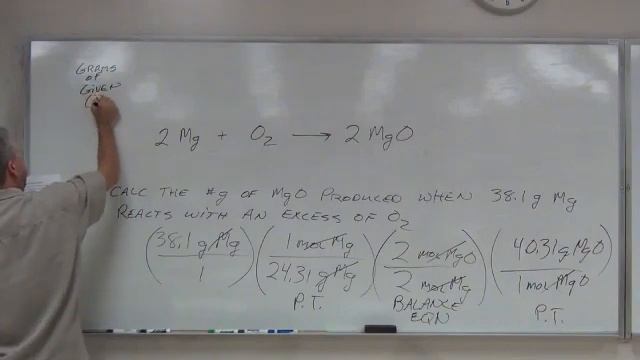 GRAMS
OF
GIVEN
(
2 Mg + O2 → 2 MgO
CALC THE #g OF MgO PRODUCED WHEN 38.1 g Mg
REACTS WITH AN EXCESS OF O2
(38.1 g Mg / 1) (1 mol Mg / 24.31 g Mg) (2 mol MgO / 2 mol Mg) (40.31 g MgO / 1 mol MgO)
P.T. BALANCE EQN P.T.